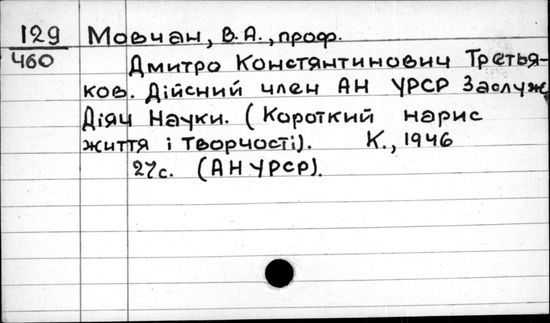 129 Мовчан, В.А., проф.
460 Дмитро Констянтинович Третья-
ков. Дійсний член АН УРСР Заслуж.
Діяч Науки. (Короткий нарис
життя і творчості). К., 1946
27с. (АН УРСР).